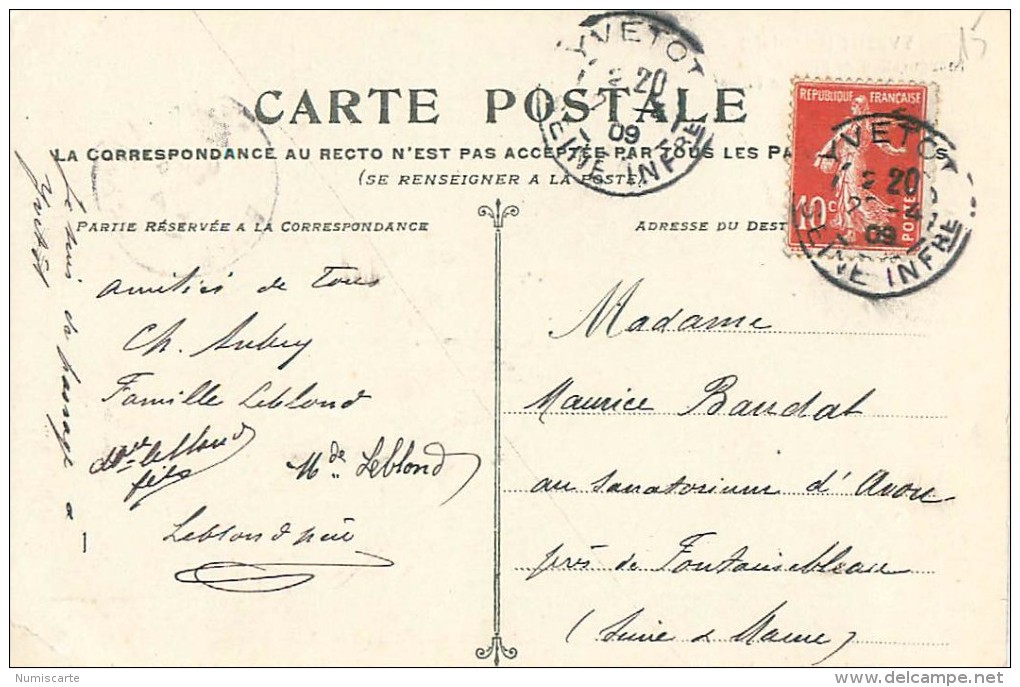 CARTE POSTALE
LA CORRESPONDANCE AU RECTO N'EST PAS ACCEPTÉE PAR TOUS LES PA S
(SE RENSEIGNER A LA POSTE)
PARTIE RÉSERVÉE A LA CORRESPONDANCE
ADRESSE DU DEST
YVETOT
2 20
09
SEINE INFRE
REPUBLIQUE FRANÇAISE
10c
POSTES
YVETOT
2 20
22-4
09
SEINE INFRE
15
de passage à
Yvetot
amitiés de tous
Ch. Aubry
Famille Leblond
Leblond
fils
Mde Leblond
Leblond père
Madame
Maurice Baudat
au Sanatorium d'Avon
près de Fontainebleau
(Seine & Marne)
Numiscarte
www.delcampe.net